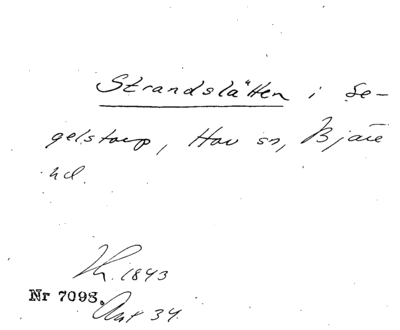 Strandslätten i Se-
gelstorp, Hov sn, Bjäre
hd.
1843
Nr 7098.
Ant 34